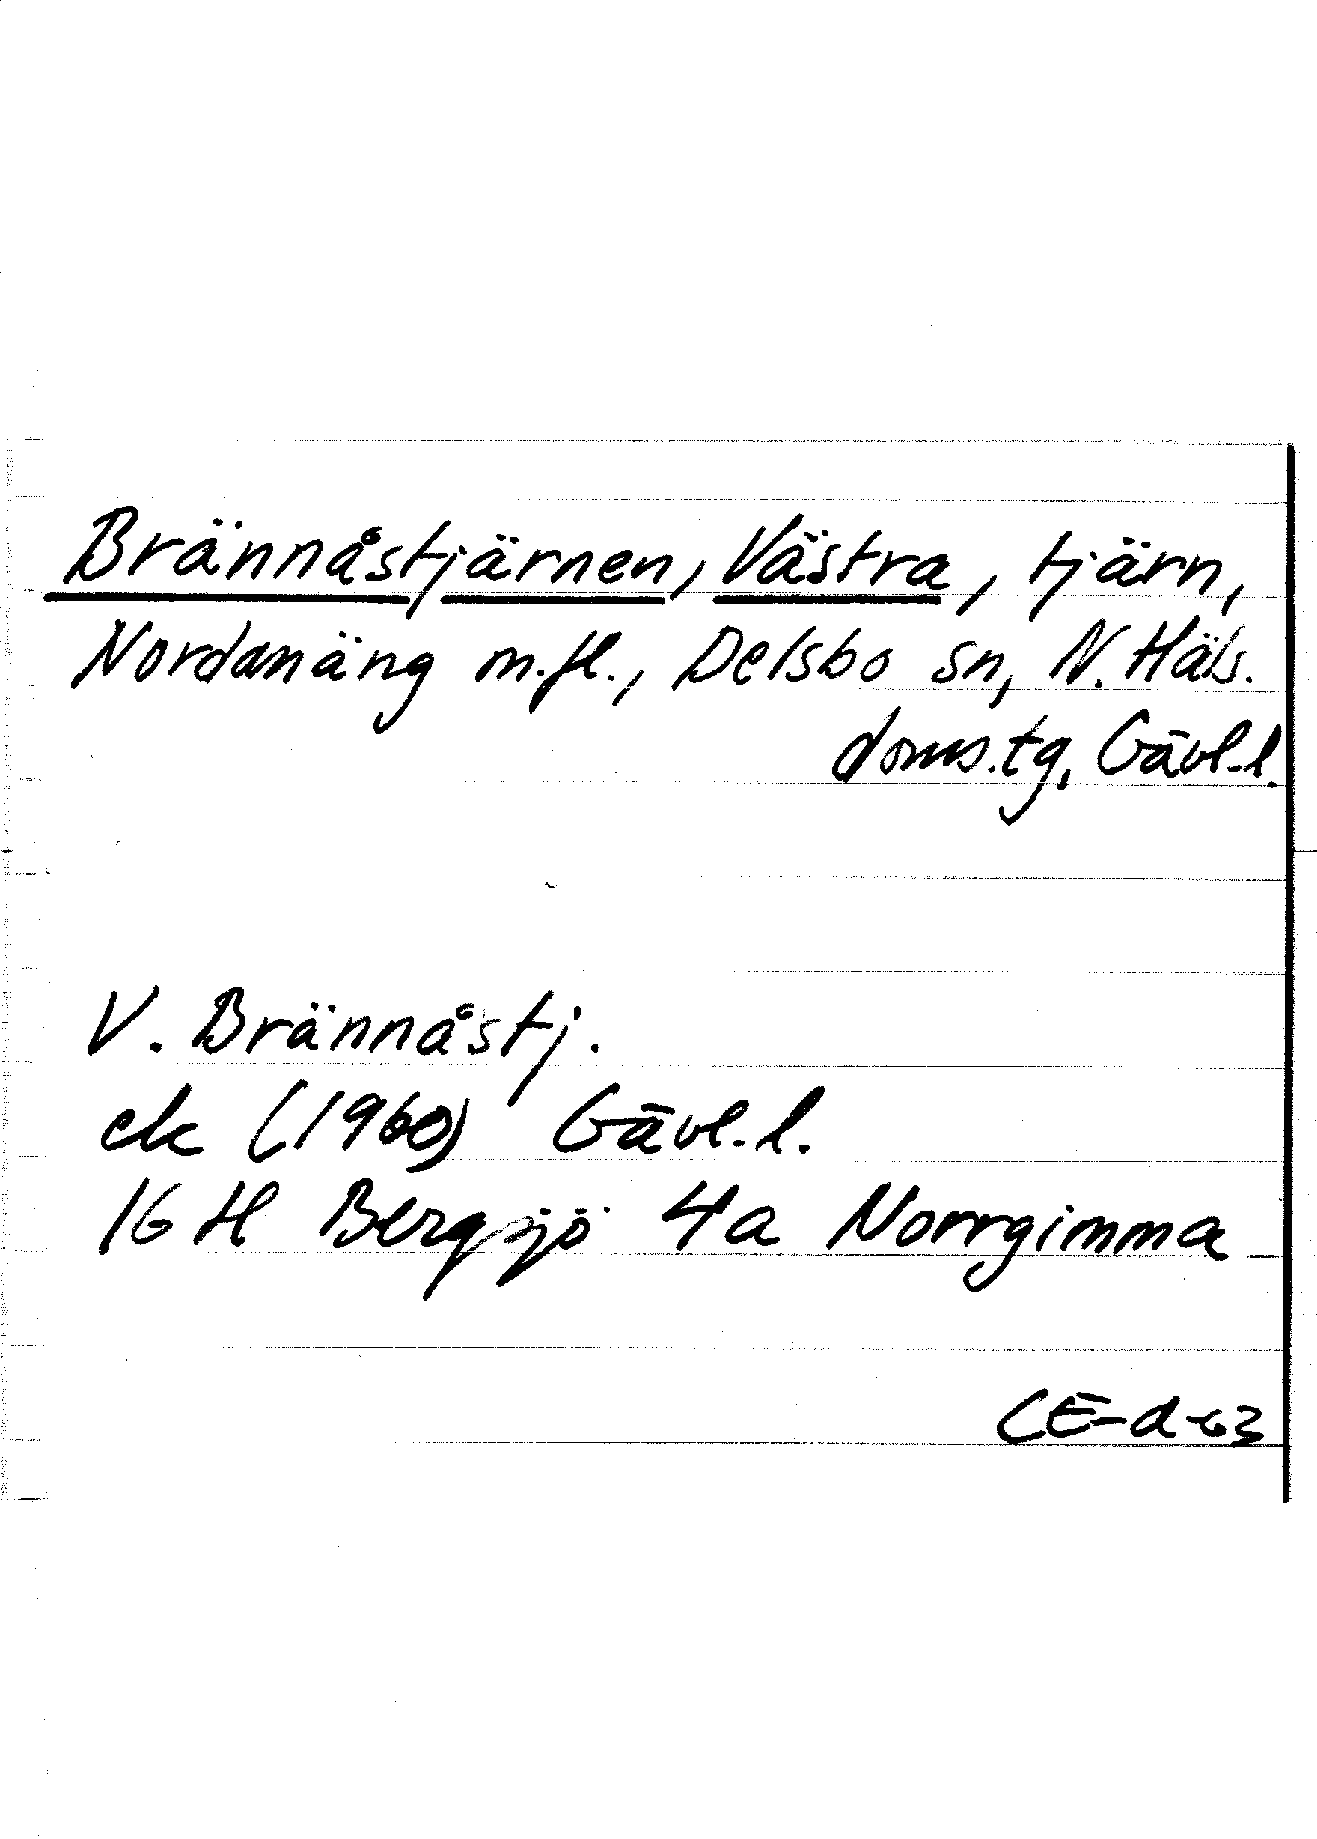 Brännåstjärnen, Västra, tjärn,
Nordanäng m.fl., Delsbo sn, N. Häls.
doms.tg, Gävl.l.
V. Brännåstj.
ek (1960) Gävl.l.
16 H Bergsjö 4a Norrgimma
CE-d-63